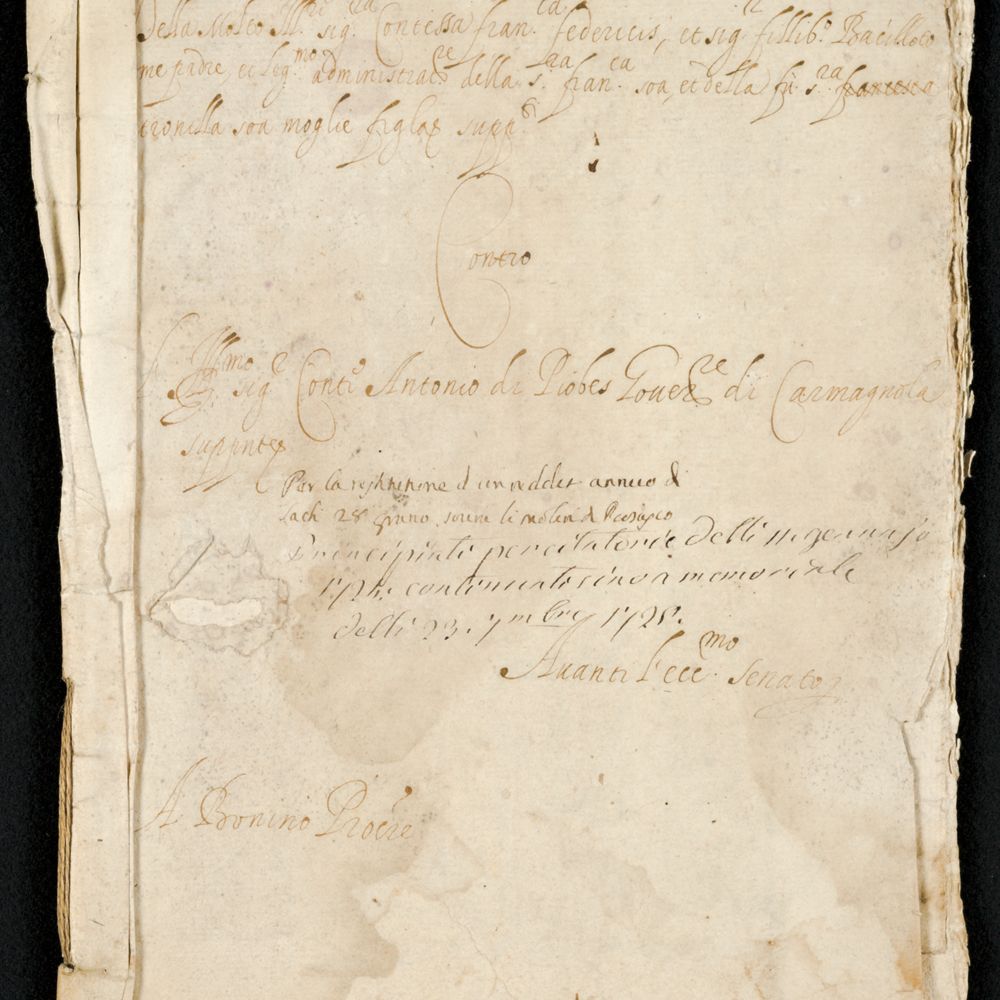 Della Molto Ill.re sig.ra Contessa fran.ca federicis, et sig.r fillib.o Bacilloto
me padre, et leg.mo administrat.re della s.ra fran.ca soa, et della fù s.ra
tronilla soa moglie supp.ti
Contro
Ill.mo sig.r Conte Antonio di Piobes Gouer.re di Carmagnola
suppnte
Per la d un reddit annuo di
sachi 28 grano soura li molini di
Principiati per citatorie delli 11 gennajo
continuati sino a memoriale
delli 23. 7mbre 1728.
Auanti l'ecc.mo Senato
A Bonino Proc.re